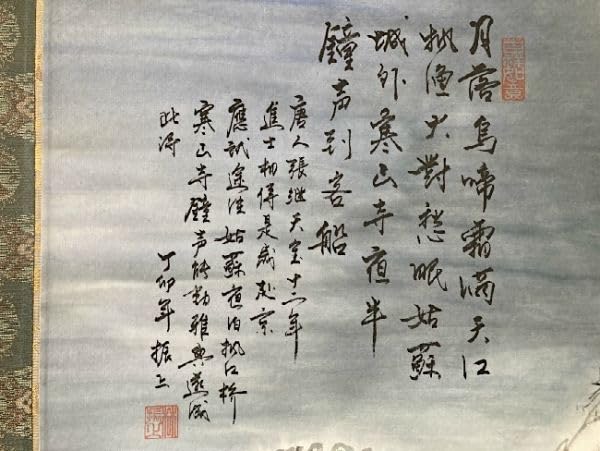 月落烏啼霜满天江
楓漁火對愁眠姑蘇
城外寒山寺夜半
鐘声到客船
唐人張继天宝十二年
進士相傳是歲赴京
應試途往姑蘇夜泊楓江桥
寒山寺鐘声触動雅興遂成
此詩
丁卯年振之